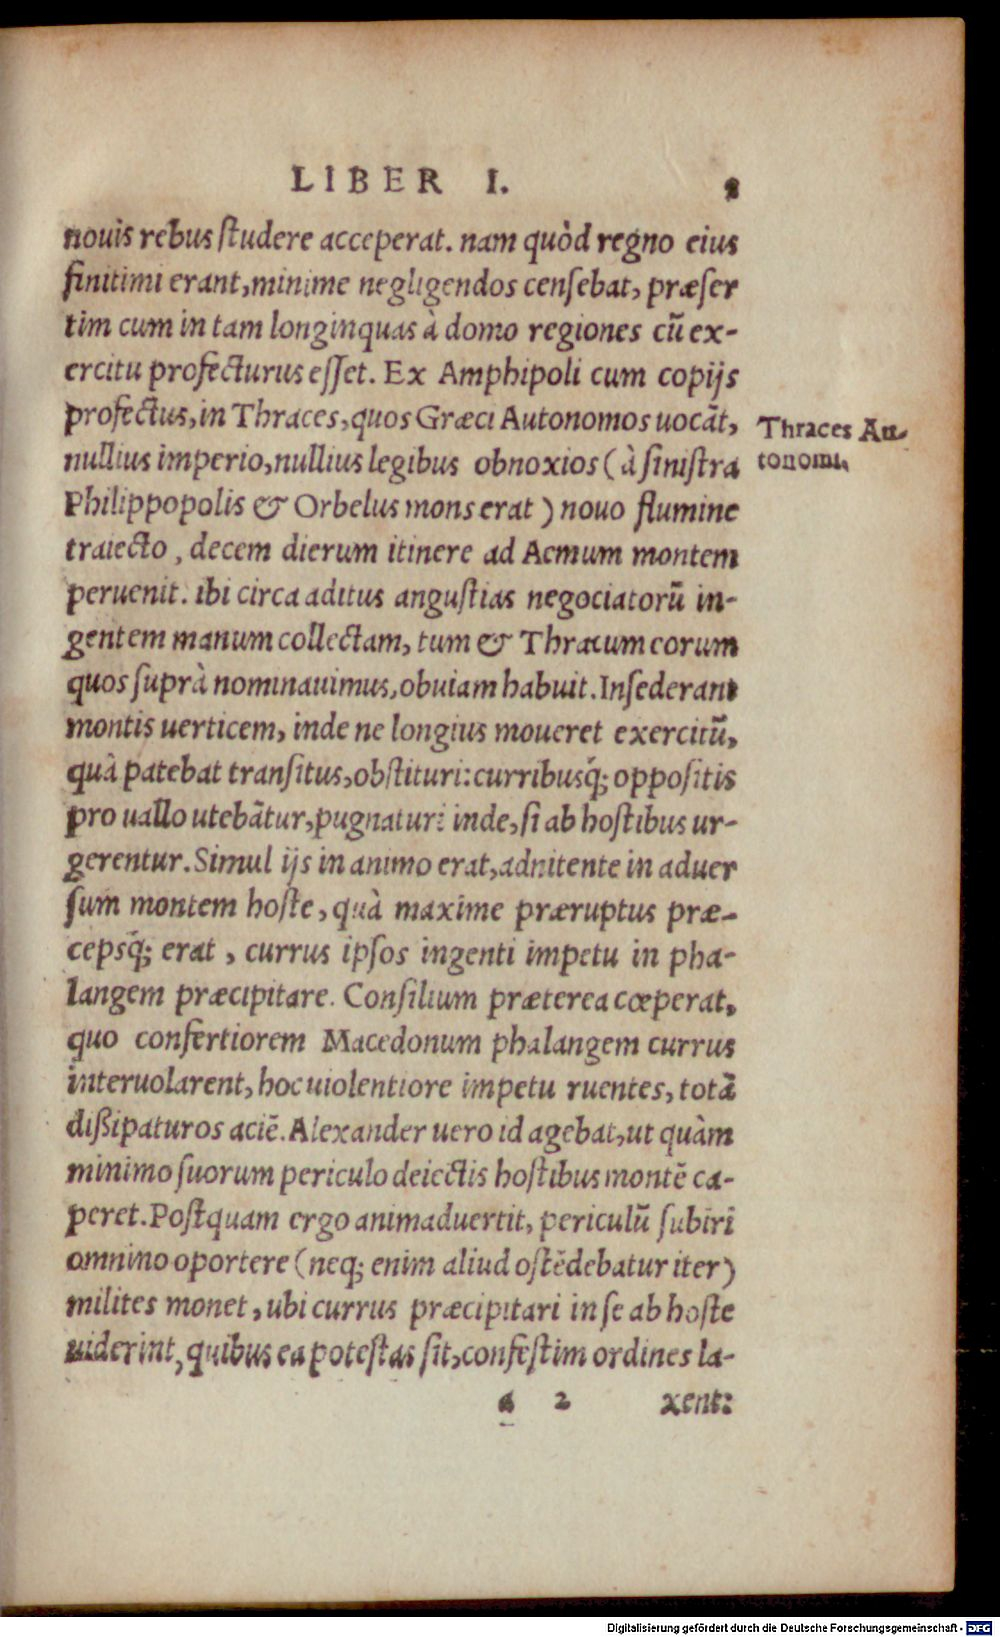 LIBER I.
nouis rebus studere acceperat. nam quòd regno eius
finitimi erant, minime negligendos censebat, præser
tim cum in tam longinquas à domo regiones cũ ex-
ercitu profecturus esset. Ex Amphipoli cum copijs
profectus, in Thraces, quos Græci Autonomos uocãt,
nullius imperio, nullius legibus obnoxios (à sinistra
Philippopolis & Orbelus mons erat) nouo flumine
traiecto, decem dierum itinere ad Aemum montem
peruenit. ibi circa aditus angustias negociatorũ in-
gentem manum collectam, tum & Thracum eorum
quos suprà nominauimus, obuiam habuit. Insederant
montis uerticem, inde ne longius moueret exercitũ,
quà patebat transitus, obstituri: curribusq́; oppositis
pro uallo utebãtur, pugnaturi inde, si ab hostibus ur-
gerentur. Simul ijs in animo erat, adnitente in aduer
sum montem hoste, quà maxime præruptus præ-
cepsq́; erat, currus ipsos ingenti impetu in pha-
langem præcipitare. Consilium præterea cœperat,
quo confertiorem Macedonum phalangem currus
interuolarent, hoc uiolentiore impetu ruentes, totã
dißipaturos aciẽ. Alexander uero id agebat, ut quàm
minimo suorum periculo deiectis hostibus montẽ ca-
peret. Postquam ergo animaduertit, periculũ subiri
omnino oportere (neq; enim aliud ostẽdebatur iter)
milites monet, ubi currus præcipitari in se ab hoste
uiderint, quibus ea potestas sit, confestim ordines la-
a 2 xent:
Thraces Au-
tonomi.
Digitalisierung gefördert durch die Deutsche Forschungsgemeinschaft - DFG